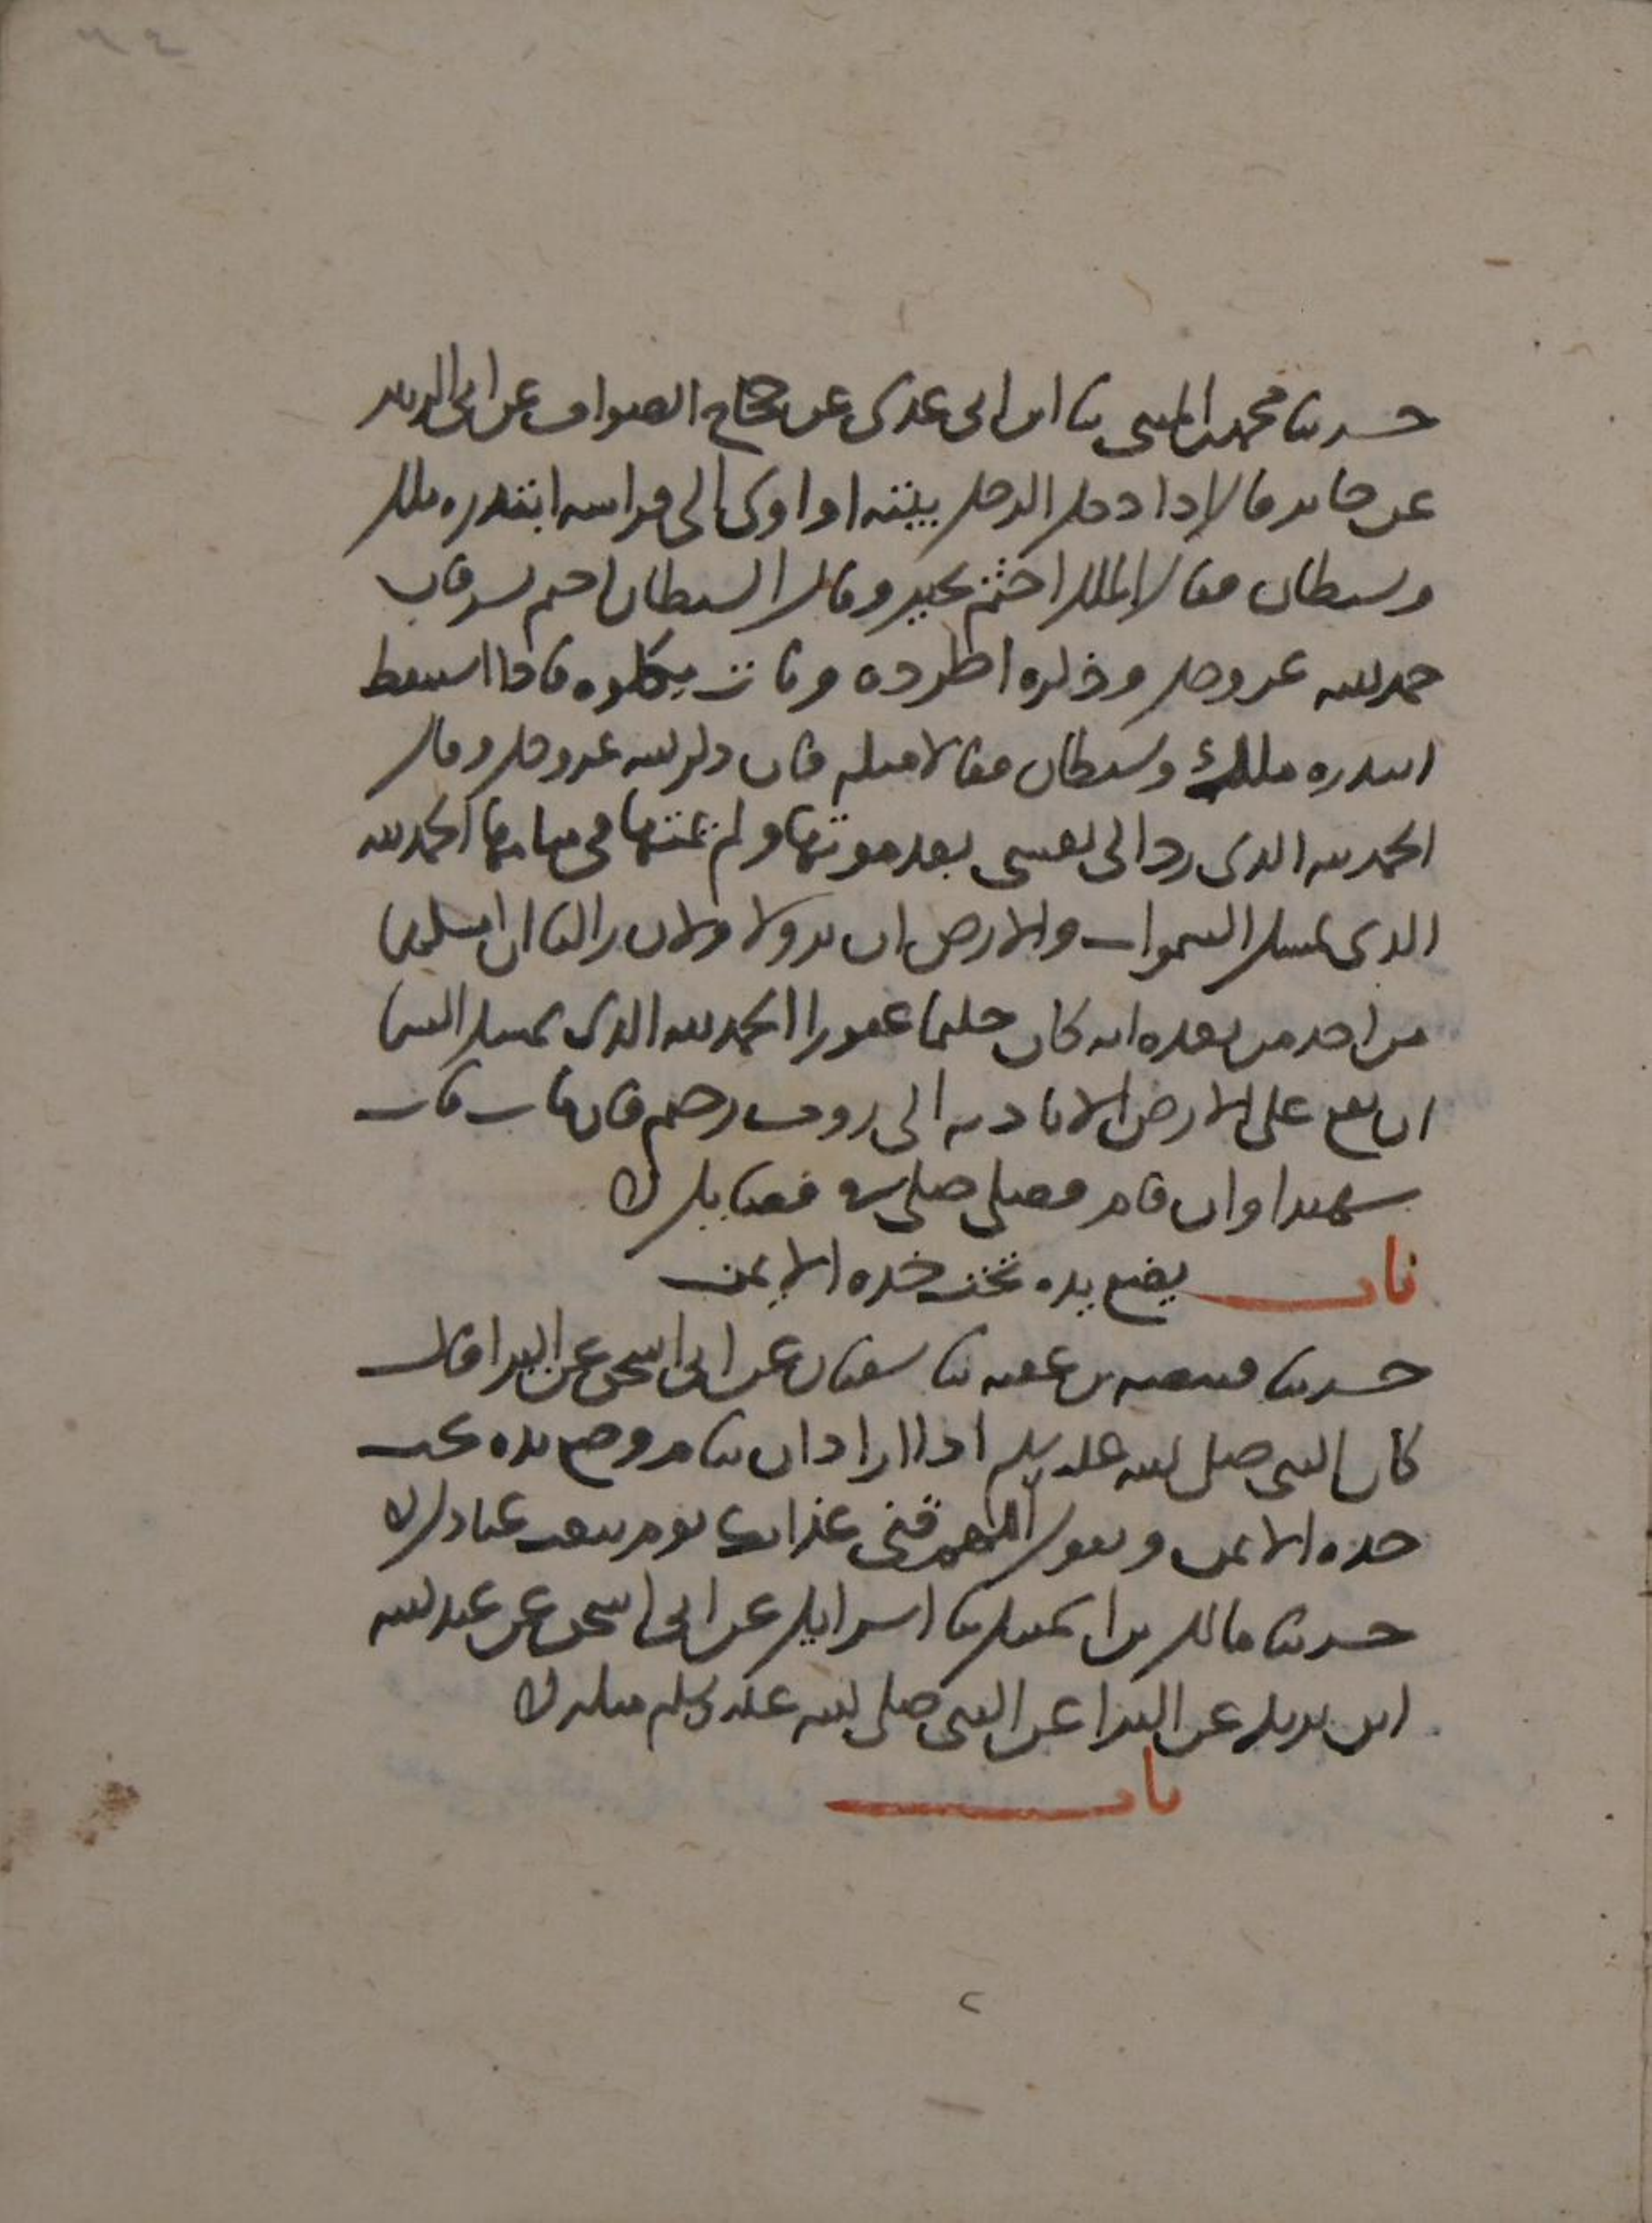 حدثنا محمد بن المثنى ثنا ابن ابي عدي عن حجاج الصواف عن ابي الزبير
عن جابر قال اذا دخل الرجل بيته او اوى الى فراشه ابتدره ملك
وشيطان فقال الملك اختم بخير وقال الشيطان اختم بشر فان
حمد الله عز وجل وذكره اطرده وبات يكلؤه فاذا استيقظ
ابتدره ملك وشيطان فقالا مثله فان ذكر الله عز وجل وقال
الحمد لله الذي رد الي نفسي بعد موتها ولم يمتها في منامها الحمد لله
الذي يمسك السموات والارض ان تزولا ولئن زالتا ان امسكهما
من احد من بعده انه كان حليما غفورا الحمد لله الذي يمسك السما
ان تقع على الارض الا باذنه الى رووف رحيم فان مات مات
شهيدا وان قام فصلى صلى في فضايل
باب يضع يده تحت خده الايمن
حدثنا قبيصة بن عقبة ثنا سفيان عن ابي اسحق عن البرا قال
كان النبي صلى الله عليه وسلم اذا اراد ان ينام وضع يده تحت
خده الايمن ويقول اللهم قني عذابك يوم تبعث عبادك
حدثنا مالك بن اسمعيل ثنا اسرايل عن ابي اسحق عن عبد الله
ابن يزيد عن البرا عن النبي صلى الله عليه وسلم مثله
باب
٢